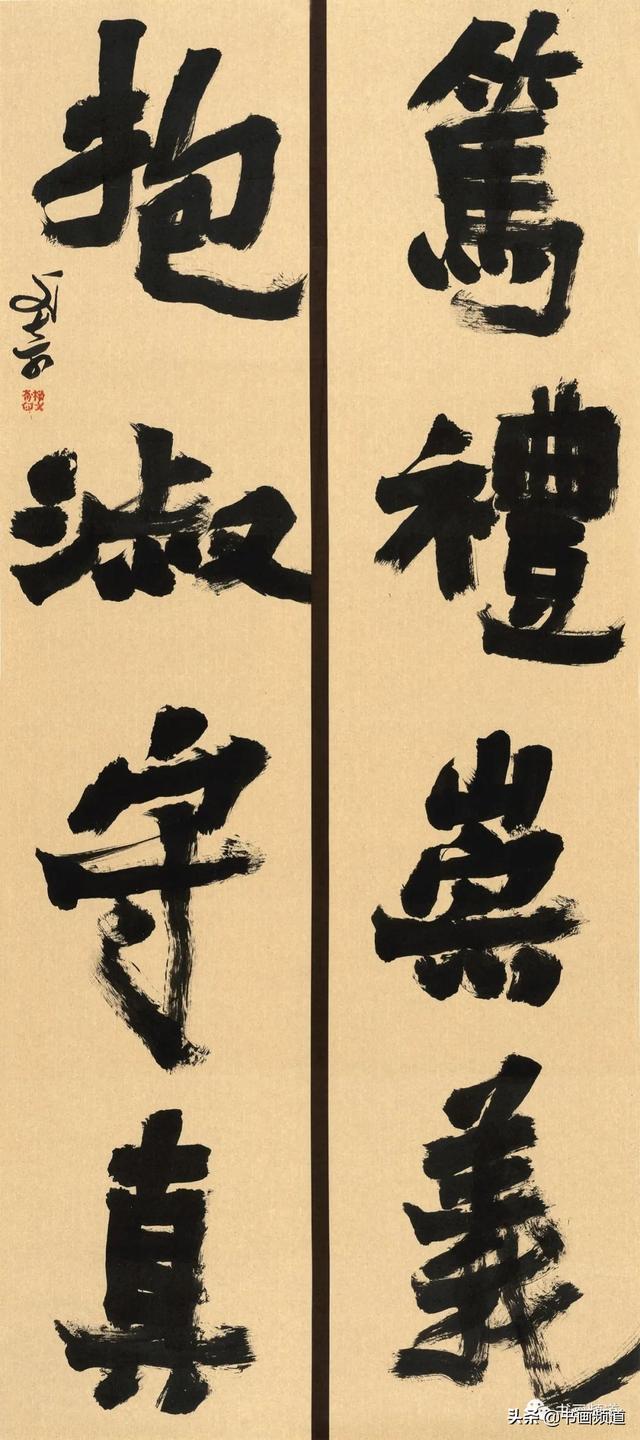 篤禮崇義
抱淑守真
头条@书画频道